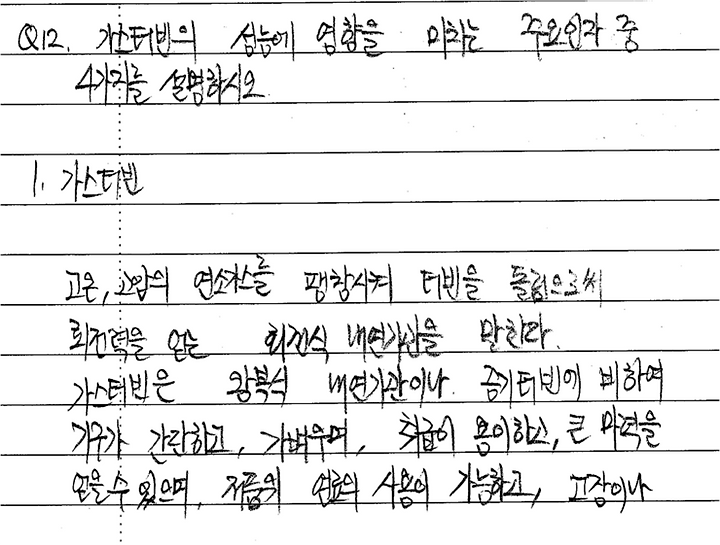 Q12. 가스터빈의 성능에 영향을 미치는 주요인자 중
4가지를 설명하시오.
1. 가스터빈
고온, 고압의 연소가스를 팽창시켜 터빈을 돌림으로써
회전력을 얻는 회전식 내연기관을 말한다.
가스터빈은 왕복식 내연기관이나 증기터빈에 비하여
기구가 간단하고, 가벼우며, 취급이 용이하고, 큰 마력을
얻을 수 있으며, 저품위 연료의 사용이 가능하고, 고장이나